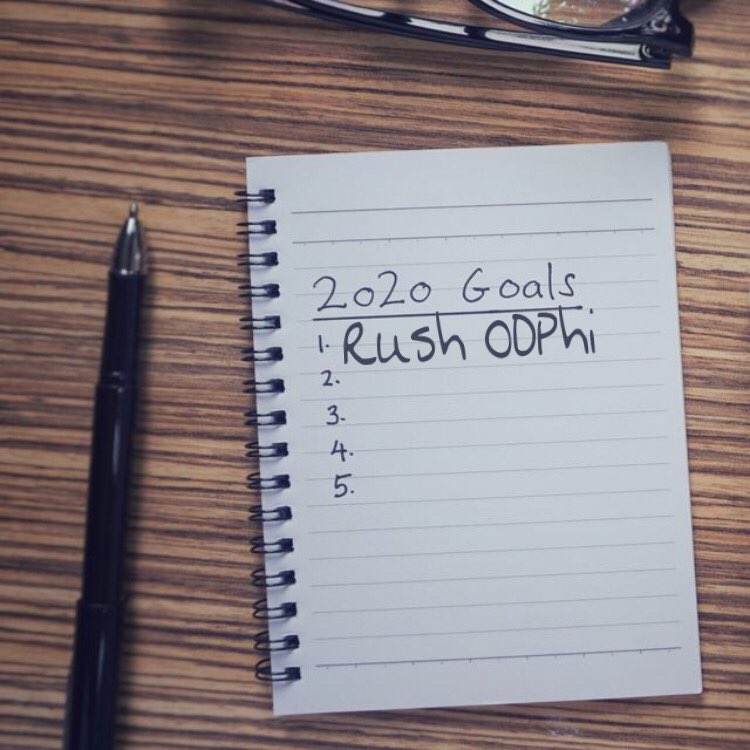 2020 Goals
1. Rush ODPhi
2.
3.
4.
5.